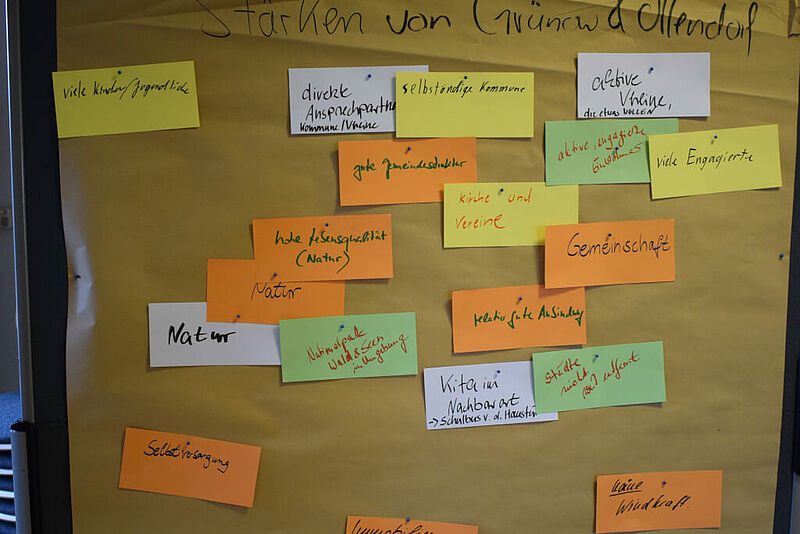 Stärken von Grünow & Ollendorf
viele Kinder/Jugendliche
direkte
Ansprechpartner
Kommune/Vereine
selbständige Kommune
aktive
Vereine,
die etwas WOLLEN
aktive, engagierte
Einwohner
viele Engagierte
gute Gemeindestruktur
Kirche und
Vereine
hohe Lebensqualität
(Natur)
Gemeinschaft
Natur
relativ gute Anbindung
Natur
Nationalpark
Wald & Seen
in Umgebung
Kita im
Nachbarort
→ Schulbus v. d. Haustür
Städte
nicht
weit entfernt
Selbstversorgung
keine
Windkraft.